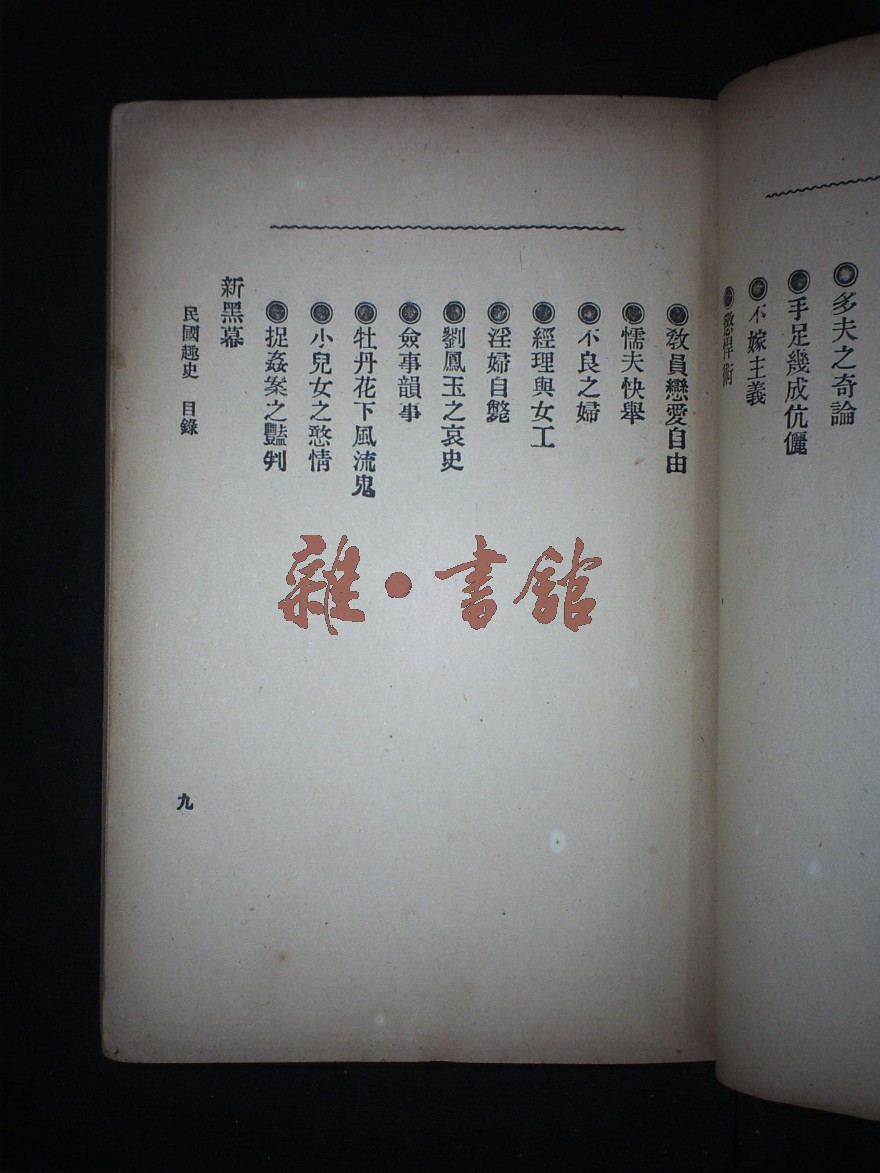 多夫之奇論
手足幾成伉儷
不嫁主義
懲悍術
教員戀愛自由
懦夫快舉
不良之婦
經理與女工
淫婦自斃
劉鳳玉之哀史
僉事韻事
牡丹花下風流鬼
小兒女之憨情
捉姦案之豔判
新黑幕
民國趣史 目錄
九
雜·書館